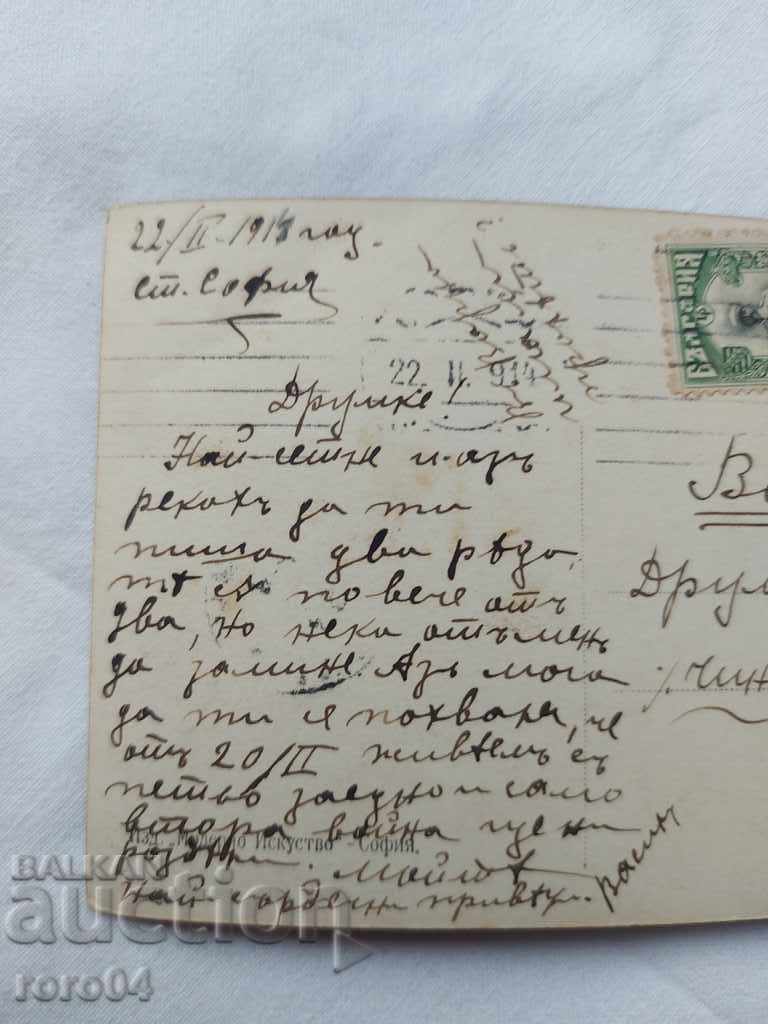 22/II-1914 год.
ст. София
22. II. 914
БЪЛГАРИЯ
Друмке!
Най-сетне и азъ
рекохъ да ти
пиша два реда,
тѣ сѫ повече отъ
два, но нека отъ менъ
да замине. Азъ мога
да ти се похваля, че
отъ 20/II живѣемъ съ
Петьо заедно и само
втора война ще ни
раздѣли. Моитѣ
най-сърдечни привѣти.
Васил
Изд. Искуство - София.
Друм
Чин
BALKAN
auction
roro04